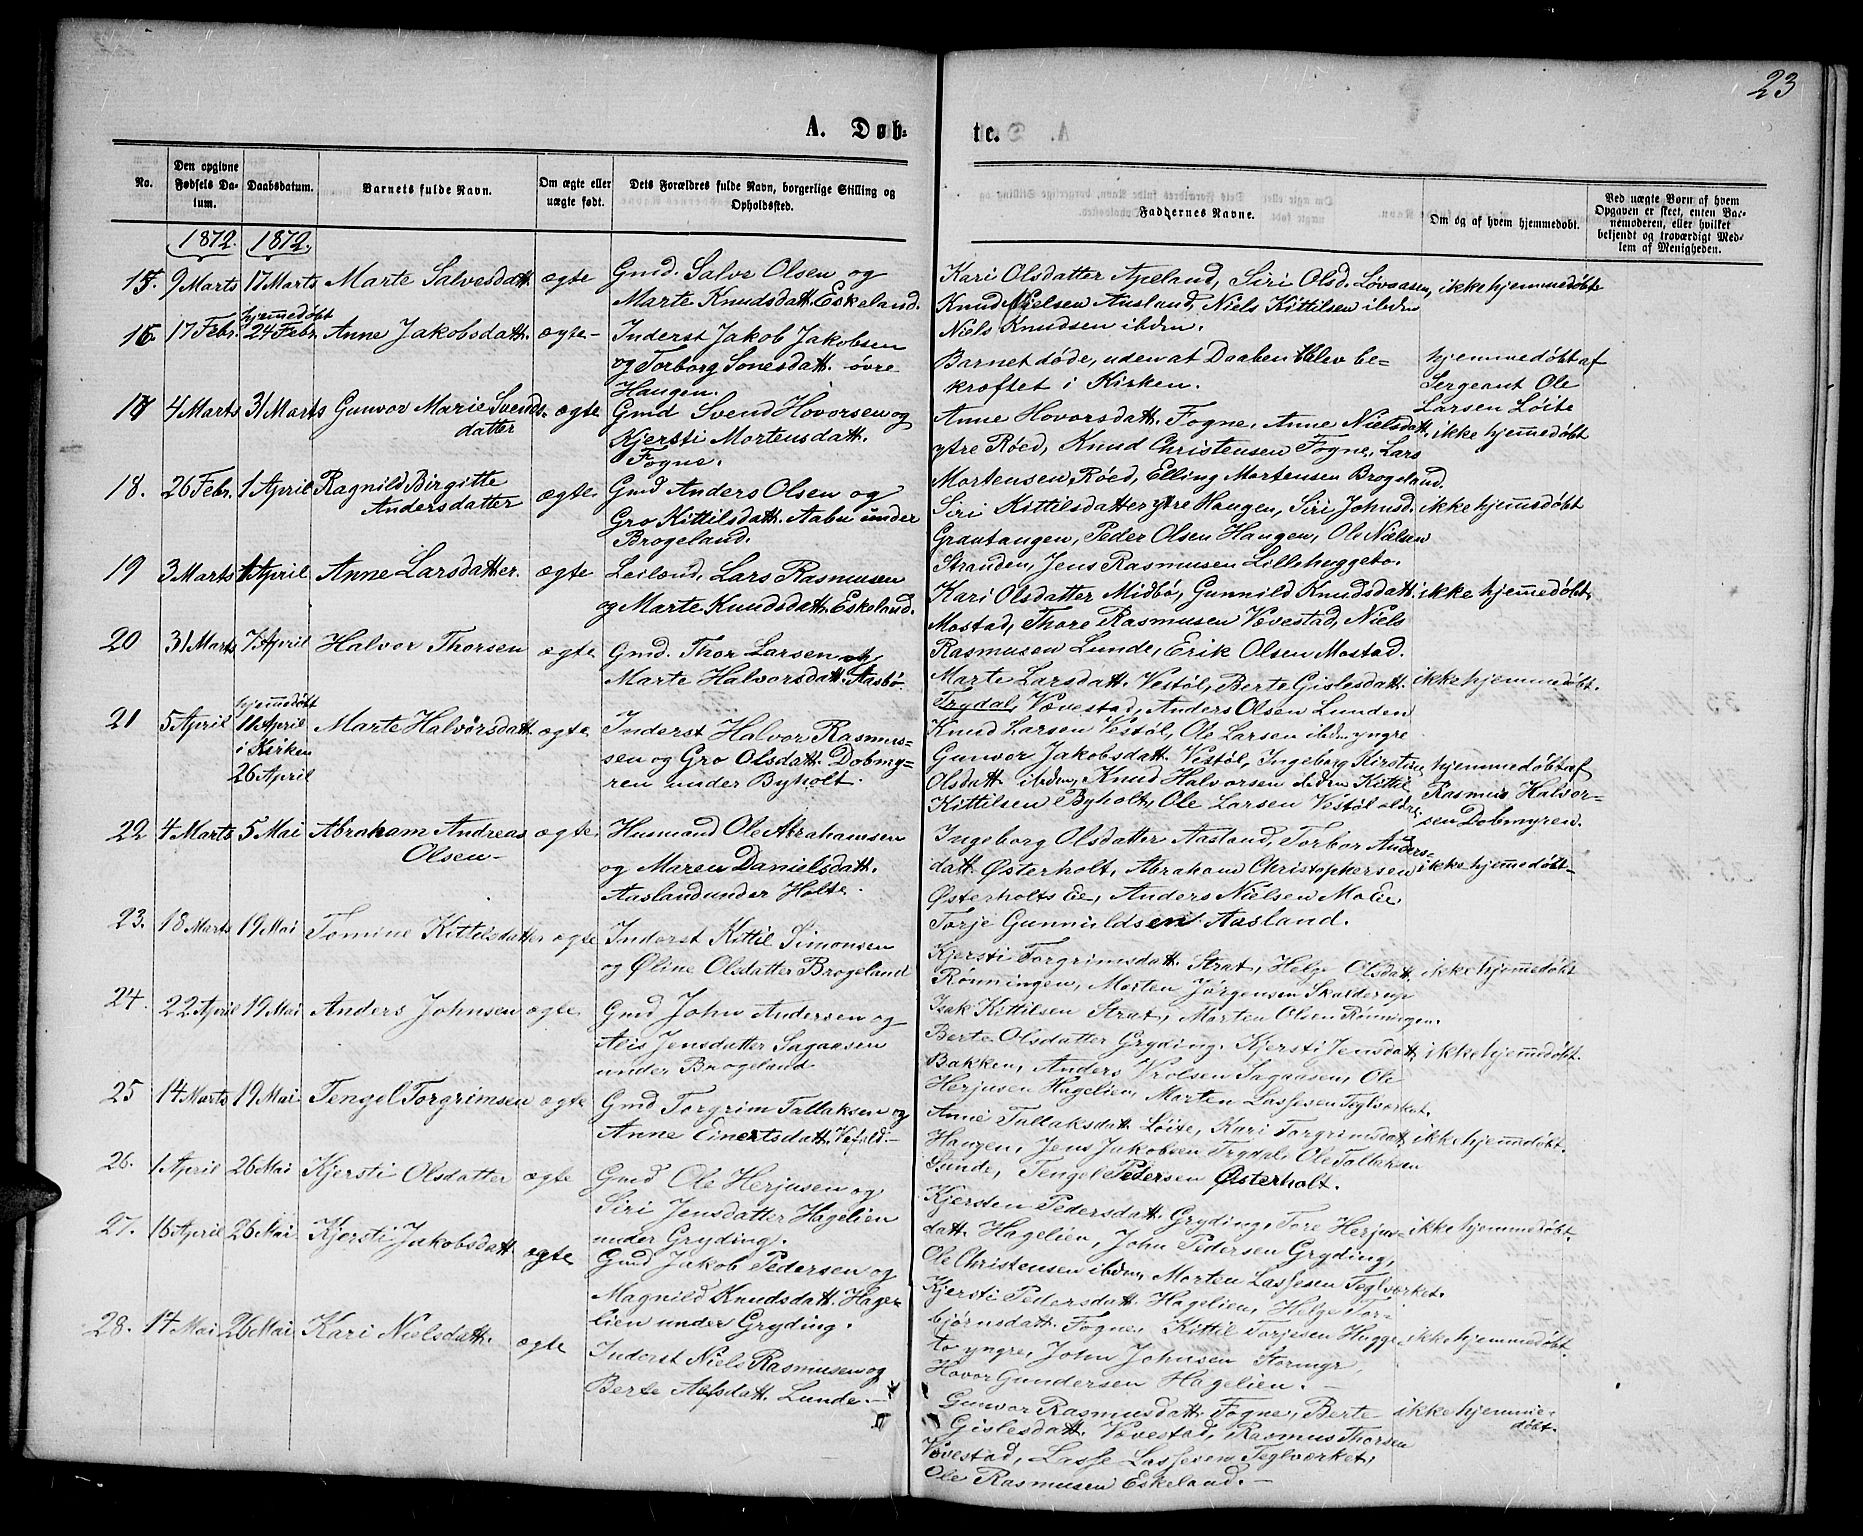 23
A. Døb-
te.
No.
Den opgivne Fødsels Da-tum.
Daabsdatum.
Barnets fulde Navn.
Om ægte eller uægte født.
Dets Forældres fulde Navn, borgerlige Stilling og Opholdssted.
Faddernes Navne.
Om og af hvem hjemmedøbt.
Ved uægte Børn af hvem Opgaven er skeet, enten Bar-nemoderen, eller hvilket bekjendt og troværdigt Med-lem af Menigheden.
1872. 1872.
15. 9 Marts 17 Marts Marte Salvesdatt. ægte
Gmd. Salve Olsen og
Marte Knudsdatt. Eskeland.
Kari Olsdatter Apeland, Siri Olsd. Løvaasen,
Knud Nielsen Aasland, Niels Kittilsen ibdm
Niels Knudsen ibdm.
ikke hjemmedøbt
16 17 Febr. hjemmedøbt
24 Febr. Anne Jakobsdatt. ægte
Inderst Jakob Jakobsen
og Torborg Sonesdatt. øvre
Haugen.
Barnet døde, uden at Daaben blev be-
kræftet i Kirken.
hjemmedøbt af
Sergeant Ole
Larsen Løite
17 4 Marts 31 Marts Gunvor Marie Svends-
datter ægte
Gmd Svend Hovorsen og
Kjersti Mortensdatt.
Fogne.
Anne Hovorsdatt. Fogne, Anne Nielsdatt.
ytre Røed, Knud Christensen Fogne, Lars
Mortensen Røed, Elling Mortensen Brogeland.
ikke hjemmedøbt
18. 26 Febr. 1 April Ragnild Birgitte
Andersdatter ægte.
Gmd Anders Olsen og
Gro Kittilsdatt. Aabu under
Brogeland.
Siri Kittilsdatter ytre Haugen, Siri Johnsd.
Grautangen, Peder Olsen Haugen, Ole Nielsen
Stranden, Jens Rasmussen Lillehuggeto.
ikke hjemmedøbt
19 3 Marts 1 April Anne Larsdatter. ægte
Leilænd. Lars Rasmusen
og Marte Knudsdatt. Eskeland.
Kari Olsdatter Midbø, Gunnild Knudsdatt.
Mostad, Thore Rasmusen Vevestad, Niels
Rasmusen Lunde, Erik Olsen Mostad.
ikke hjemmedøbt.
20 31 Marts 7 April Halvor Thorsen ægte
Gmd. Thor Larsen og
Marte Halvorsdatt. Aasbø.
Marte Larsdatt. Vestøl, Berte Gislesdatt.
Trydal, Vævestad, Anders Olsen Lunden
Knud Larsen Vestøl, Ole Larsen ibdm yngre
ikke hjemmedøbt.
21 5 April hjemmedøbt
11 April
i Kirken
26 April
Marte Halvorsdatt. ægte
Inderst Halvor Rasmus-
sen og Gro Olsdatt. Dobmy-
ren under Byholt.
Gunvor Jakobsdatt. Vestøl, Ingeborg Kirstine
Olsdatt. ibdm, Knud Halvorsen ibdm Kittil
Kittilsen Byholt, Ole Larsen Vestøl ældre.
hjemmedøbt af
Rasmus Halvor-
sen Dobmyren.
22 4 Marts 5 Mai Abraham Andreas
Olsen ægte.
Husmand Ole Abrahamsen
og Maren Danielsdatt.
Aasland under Holte.
Ingeborg Olsdatter Aasland, Torbor Anders-
datt. Østerholt, Abraham Christophersen
Østerholts Eie, Anders Nielsen Moleie
Torje Gunnuldsen Aasland.
ikke hjemmedøbt
23. 18 Marts 19 Mai Tomine Kittelsdatter ægte
Inderst Kittil Simonsen
og Øline Olsdatter Brogeland
Kjersti Torgrimsdatt. Strat, Helge Olsdatt.
Rønningen, Morten Jørgensen Skarderup
Isak Kittilsen Strat, Morten Olsen Rønningen.
ikke hjemmedøbt
24. 22 April 19 Mai Anders Johnsen ægte.
Gmd John Andersen og
Alis Jensdatter Sagaasen
under Brogeland
Berte Olsdatter Gryding, Kjersti Jensdatt.
Bakken, Anders Vrolsen Sagaasen, Ole
Herjusen Hagelien, Morten Lassesen Teglverket.
ikke hjemmedøbt.
25 14 Marts 19 Mai Tengel Torgrimsen ægte
Gmd Torgrim Tallaksen og
Anne Einertsdatt. Vefald.
Anne Tallaksdatt. Løite, Kari Torgrimsdatt.
Haugen, Jens Jakobsen Trydal, Ole Tallaksen
Lunde, Tengel Pedersen Østerholt.
ikke hjemmedøbt.
26. 1 April 26 Mai Kjersti Olsdatter ægte
Gmd Ole Herjusen og
Siri Jensdatter Hagelien
under Gryding.
Kjersten Pedersdatt. Gryding, Tore Herjus-
datt. Hagelien, John Pedersen Gryding,
Ole Christensen ibdm, Morten Lassesen Teglverket.
ikke hjemmedøbt.
27. 16 April 26 Mai Kjersti Jakobsdatt. ægte
Gmd Jakob Pedersen og
Magnild Knudsdatt. Hage-
lien under Gryding.
Kjersti Pedersdatt. Hagelien, Helge Tor-
bjørnsdatt. Fogne, Kittil Torjesen Hugge-
to yngre, John Johnsen Stormyr,
Hovor Gundersen Hagelien.
ikke hjemmedøbt.
28. 14 Mai 26 Mai Kari Nielsdatt. ægte
Inderst Niels Rasmusen og
Berte Alfsdatt. Lunde.
Gunvor Rasmusdatt. Fogne, Berte
Gislesdatt. Vævestad, Rasmus Thorsen
Vævestad, Lasse Lassesen Teglværket,
Ole Rasmusen Eskeland.
ikke hjemme-
døbt.